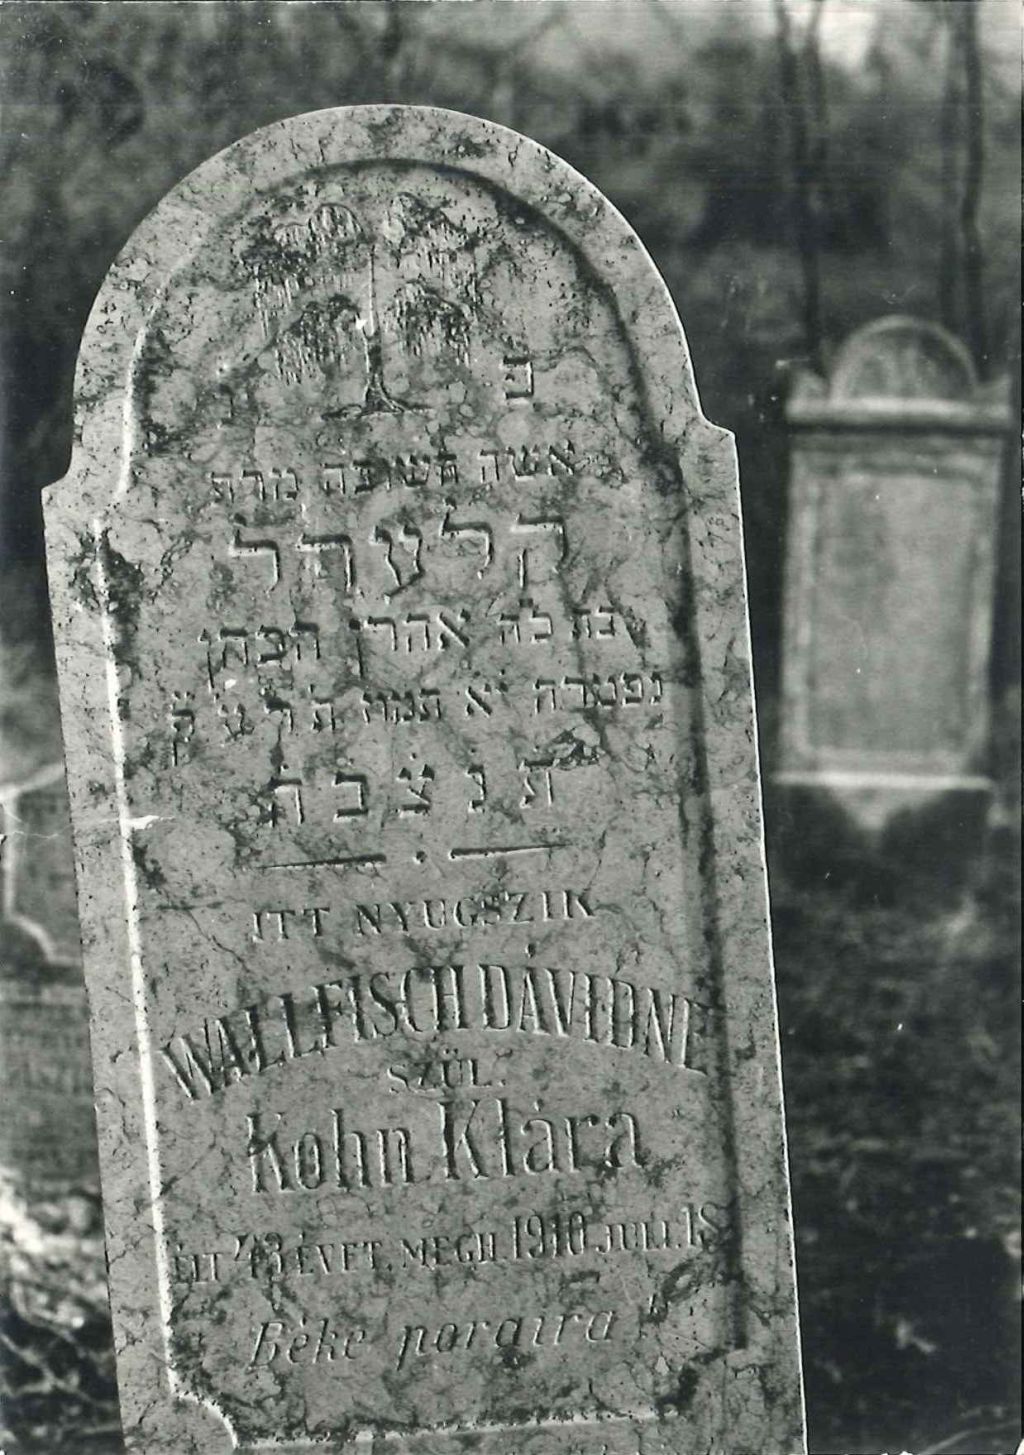 פ נ
אשה חשובה מרת
הלעהל
בת לה אהרן הכהן
נפטרה יא תמוז ת ר ע
ת נ צ ב ה
ITT NYUGSZIK
WALLFISCH DÁVIDNÉ
SZÜL.
Kohn Klára
ÉLT 43 ÉVET, MEGH. 1910. JULI. 18
Béke poraira